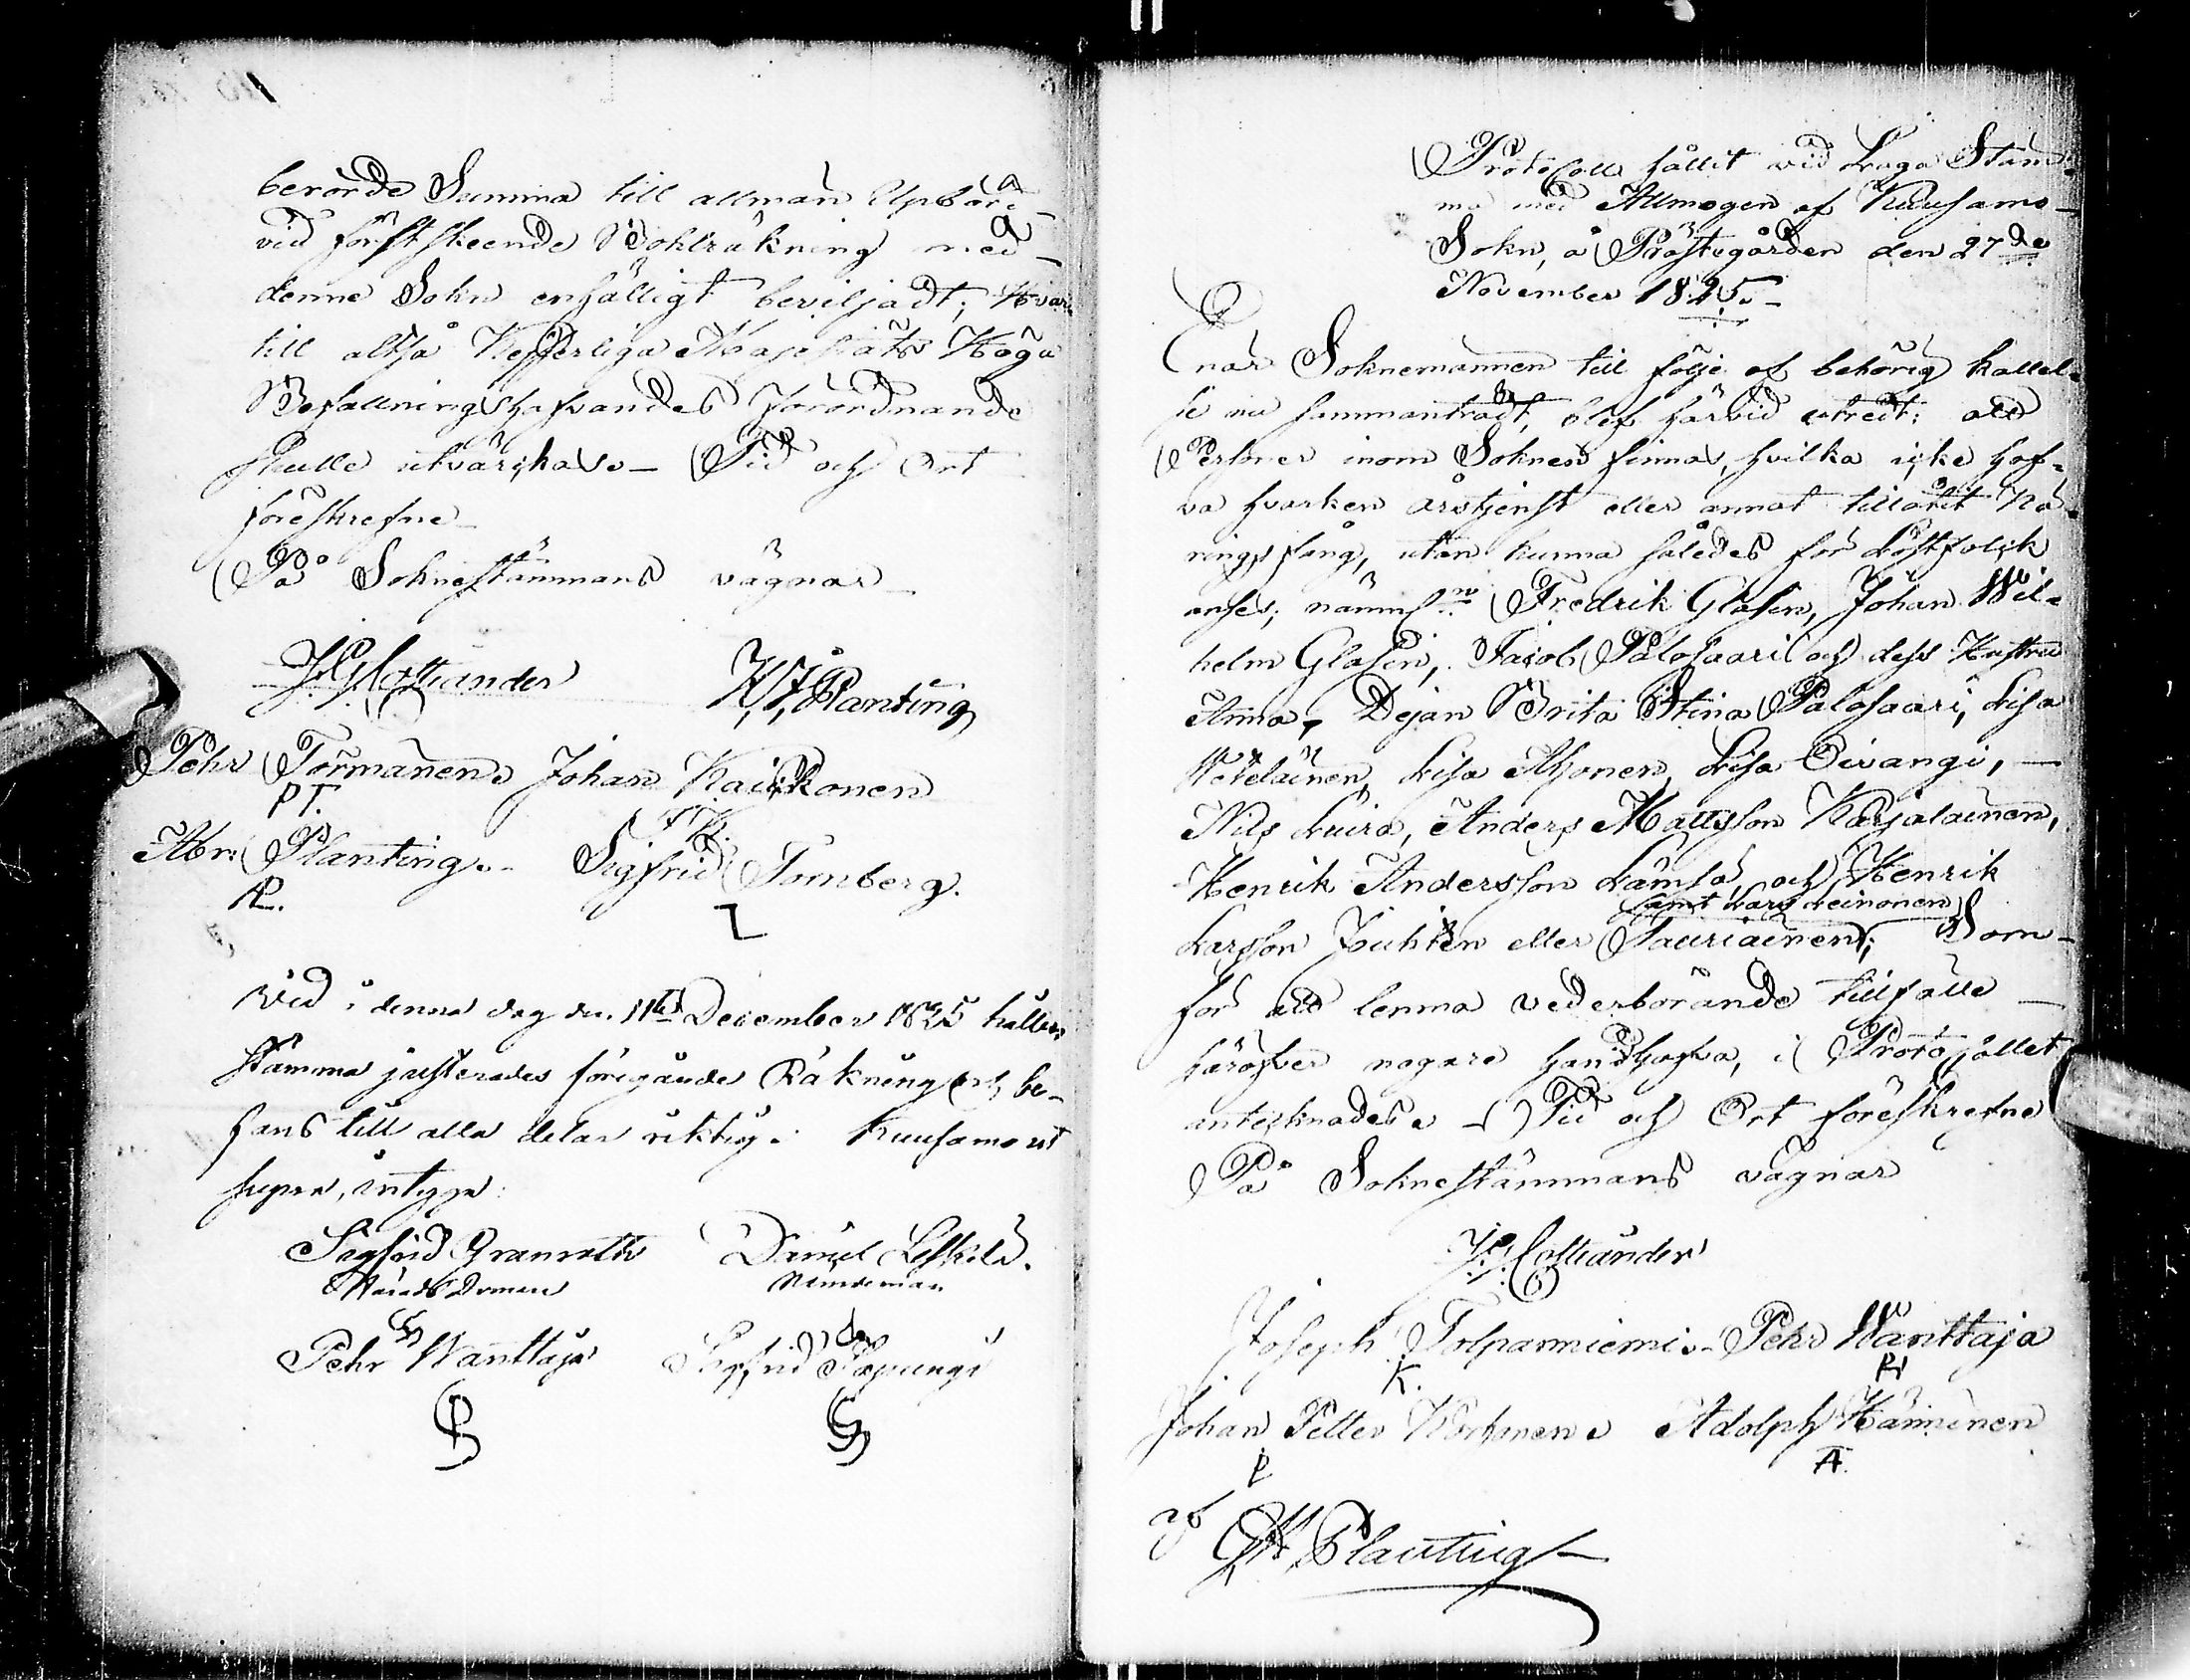 berörde Summa till allmän Upbörd
vid förstskeende Bokräkning med
denne Sokn enhälligt beviljadt; Hvar
till altså Kejserliga Majestäts Höga
Befallningshafvandes förordnande
skulle utvärckas – Tid och Ort
föreskrefne –
På Soknestämmans vägnar –
Planting
Pehr Törmänen. Johan Kaikkonen
PT.
Abr: Planting. – Sigfrid Tornberg.
AP.
Vid i denna dag den 11te December 1825 hållen
stämma justerades föregående Räkning och be-
fans till alla delar riktig. Kuusamo ut
supra, intyga:
Sigfrid Granroth Daniel
Härads Domare Nämdeman
Pehr Wanttaja Sigfrid
P
Protocoll hållit vid Laga Stäm-
ma med Allmogen af Kuusamo –
Sokn, å Prästegården den 27de
November 1825. –
Enär Soknemännen till följe af behörig kallel-
se nu sammanträdt, blef härvid utredt: att
Personer inom Soknen finnas, hvilka icke haf-
va hvarken årstjenst eller annat tillåtit Nä-
ringsfång, utan kunna således för Löstfolck
anses; nämln Fredrik Glasen, Johan Wil-
helm Glasen, Jacob Palosaari och dess Hustru
Anna, Dejan Brita Stina Palosaari, Lisa
Lisa Lisa Oivangi, –
Nils Luira, Anders Mattsson Karjalainen,
Henrik Andersson Lämsä, och Henrik
samt Lars Leinonen
Larsson eller Tauriainen; Som –
för att lemna vederbörande tillfälle –
häröfver nogare handhafva, i Protocollet
antecknades. – Tid och Ort föreskrefne
På Soknestämmans vägnar
Joseph Tolpanniemi. – Pehr Wanttaja
K. PW
Johan Petter Adolph Hänninen
P A.
Planting